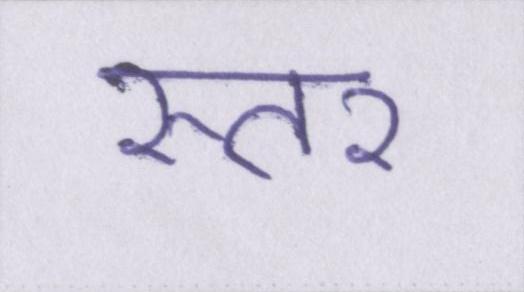 स्तर